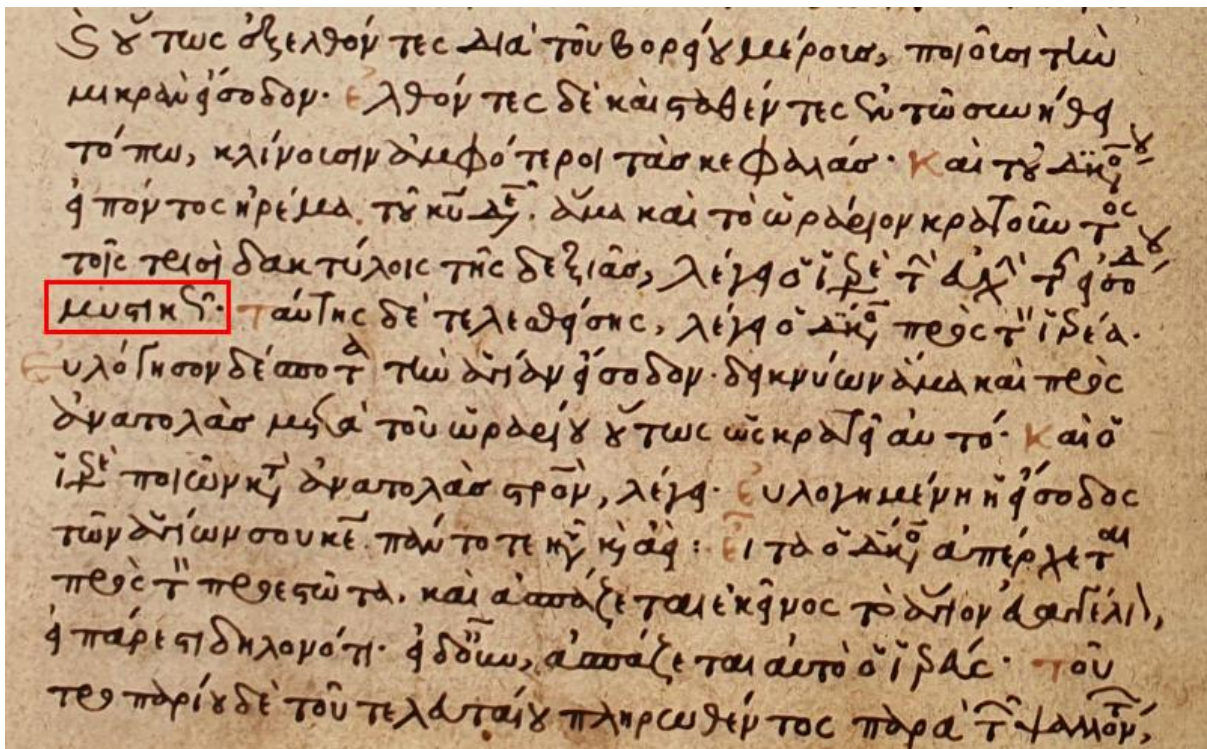 οὕτως ἐξελθόντες διὰ τοῦ βορείου μέρους, ποιοῦσι τὴν
μικρὰν εἴσοδον· ἐλθόντες δὲ καὶ σταθέντες ἐν τῷ συνήθει
τόπω, κλίνουσιν ἀμφότεροι τὰς κεφαλάς· Καὶ τοῦ διακόνου
εἰπόντος ἠρέμα, τοῦ κυ δε. ἅμα καὶ τὸ ὡράριον κρατοῦντος
τοῖς τρισὶ δακτύλοις τῆς δεξιᾶς, λέγει ὁ ἱερεὺς τὴν εὐχὴν τῆς εἰσόδου
μυστικῶς· Ταύτης δὲ τελεσθείσης, λέγει ὁ διάκονος πρὸς τὸν ἱερέα.
Εὐλόγησον δέσποτα τὴν ἁγίαν εἴσοδον· δεικνύων ἅμα καὶ πρὸς
ἀνατολὰς μετὰ τοῦ ὡραρίου οὕτως ὡς κρατεῖ αὐτό· Καὶ ὁ
ἱερεὺς ποιῶν κατὰ ἀνατολὰς στρον, λέγει· Εὐλογημένη ἡ εἴσοδος
τῶν ἁγίων σου κε. πάντοτε νῦν καὶ ἀεὶ: Εἶτα ὁ διάκονος ἀπέρχεται
πρὸς τὸν προεστῶτα. καὶ ἀσπάζεται ἐκεῖνος τὸ ἅγιον εὐαγγέλιον,
εἰ πάρεστι δηλονότι· εἰ δ' οὖν, ἀσπάζεται αὐτὸ ὁ ἱερεύς· Τοῦ
τροπαρίου δὲ τοῦ τελευταίου πληρωθέντος παρὰ τῶν ψαλλόντων,